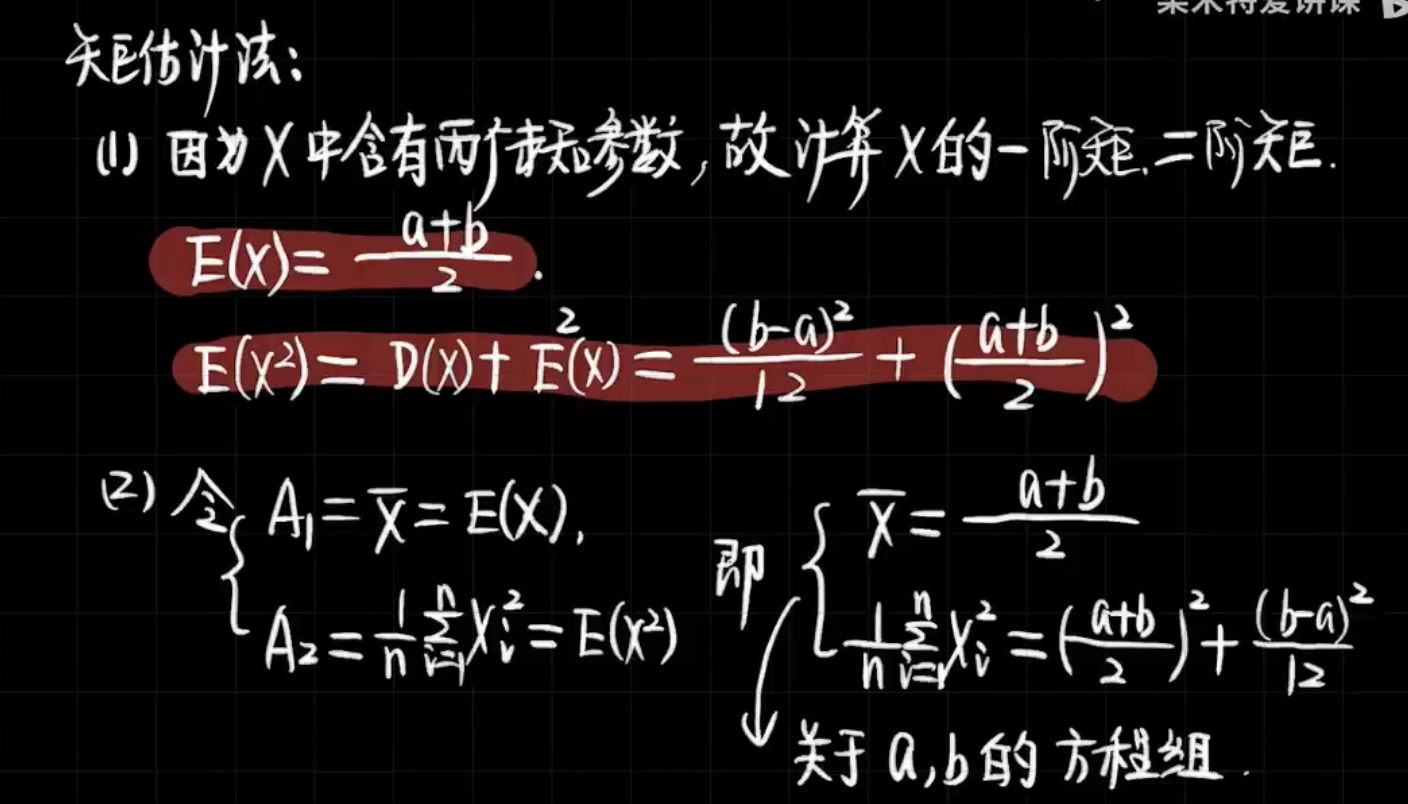 来木特爱讲课
矩估计法:
(1) 因为X中含有两个未知参数,故计算X的一阶矩.二阶矩.
E(X)= (a+b)/2 .
E(X²)= D(X)+ E²(X)= (b-a)²/12 + ((a+b)/2)²
(2) 令 { A₁= X̄ = E(X), 即 { X̄ = (a+b)/2
A₂= 1/n Σᵢ₌₁ⁿ Xᵢ² = E(X²) 1/n Σᵢ₌₁ⁿ Xᵢ² = ((a+b)/2)² + (b-a)²/12
关于 a,b 的 方程组.